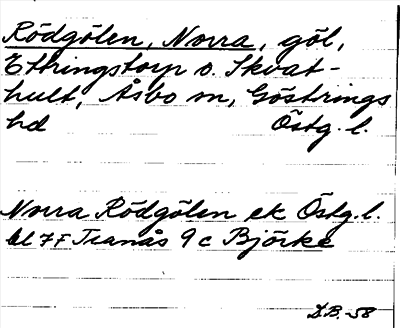 Rödgölen, Norra, göl,
Ettringstorp o. Skvat-
hult, Åsbo sn, Göstrings
hd Östg. l.
Norra Rödgölen ek Östg. l.
bl 7F Tranås 9 c Björke
D.B. -58